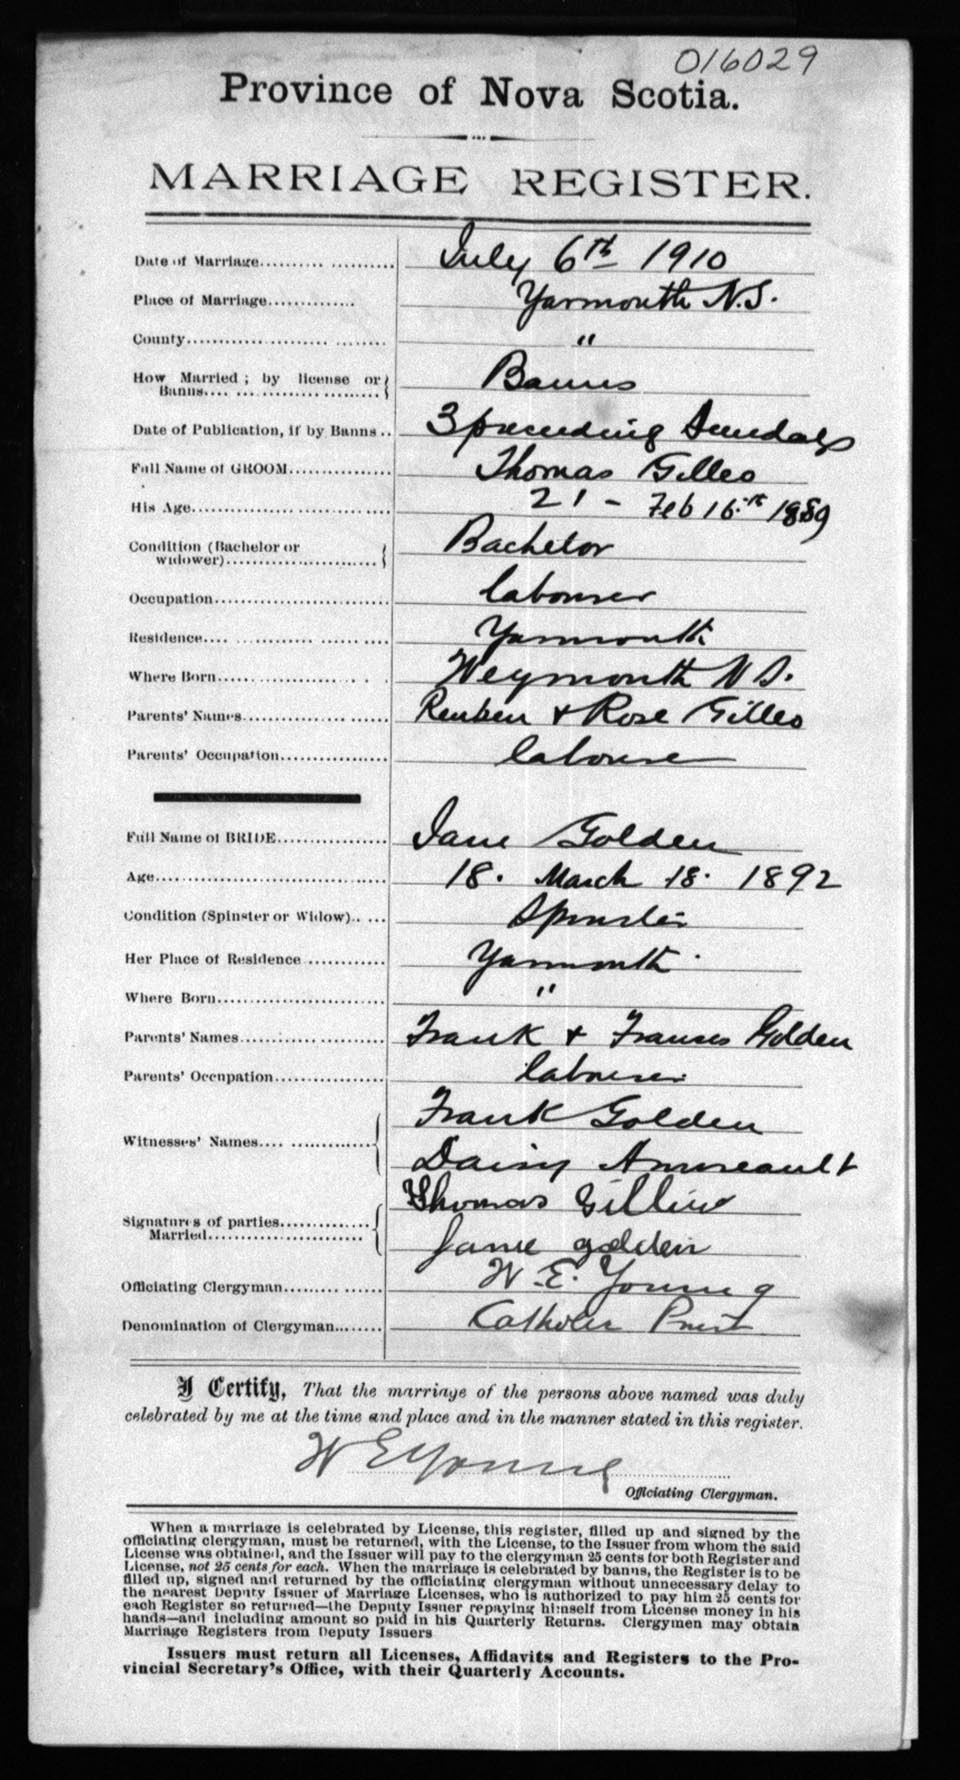 016029
Province of Nova Scotia.
MARRIAGE REGISTER.
Date of Marriage July 6th 1910
Place of Marriage Yarmouth N.S.
County "
How Married; by license or Banns Banns
Date of Publication, if by Banns 3 preceeding Sundays
Full Name of GROOM Thomas Gilles
His Age 21 - Feb 16th 1889
Condition (Bachelor or widower) Bachelor
Occupation labourer
Residence Yarmouth
Where Born Weymouth N S.
Parents' Names Reuben & Rose Gilles
Parents' Occupation labourer
Full Name of BRIDE Jane Golden
Age 18. March 18. 1892
Condition (Spinster or Widow) Spinster
Her Place of Residence Yarmouth
Where Born "
Parents' Names Frank & Frances Golden
Parents' Occupation labourer
Witnesses' Names Frank Golden
Daisy Amireault
Signatures of parties Married Thomas
Jane golden
Officiating Clergyman W. E. Young
Denomination of Clergyman Catholic Priest
I Certify, That the marriage of the persons above named was duly
celebrated by me at the time and place and in the manner stated in this register.
W E Young
Officiating Clergyman.
When a marriage is celebrated by License, this register, filled up and signed by the
officiating clergyman, must be returned, with the License, to the Issuer from whom the said
License was obtained, and the Issuer will pay to the clergyman 25 cents for both Register and
License, not 25 cents for each. When the marriage is celebrated by banns, the Register is to be
filled up, signed and returned by the officiating clergyman without unnecessary delay to
the nearest Deputy Issuer of Marriage Licenses, who is authorized to pay him 25 cents for
each Register so returned—the Deputy Issuer repaying himself from License money in his
hands—and including amount so paid in his Quarterly Returns. Clergymen may obtain
Marriage Registers from Deputy Issuers
Issuers must return all Licenses, Affidavits and Registers to the Pro-
vincial Secretary's Office, with their Quarterly Accounts.